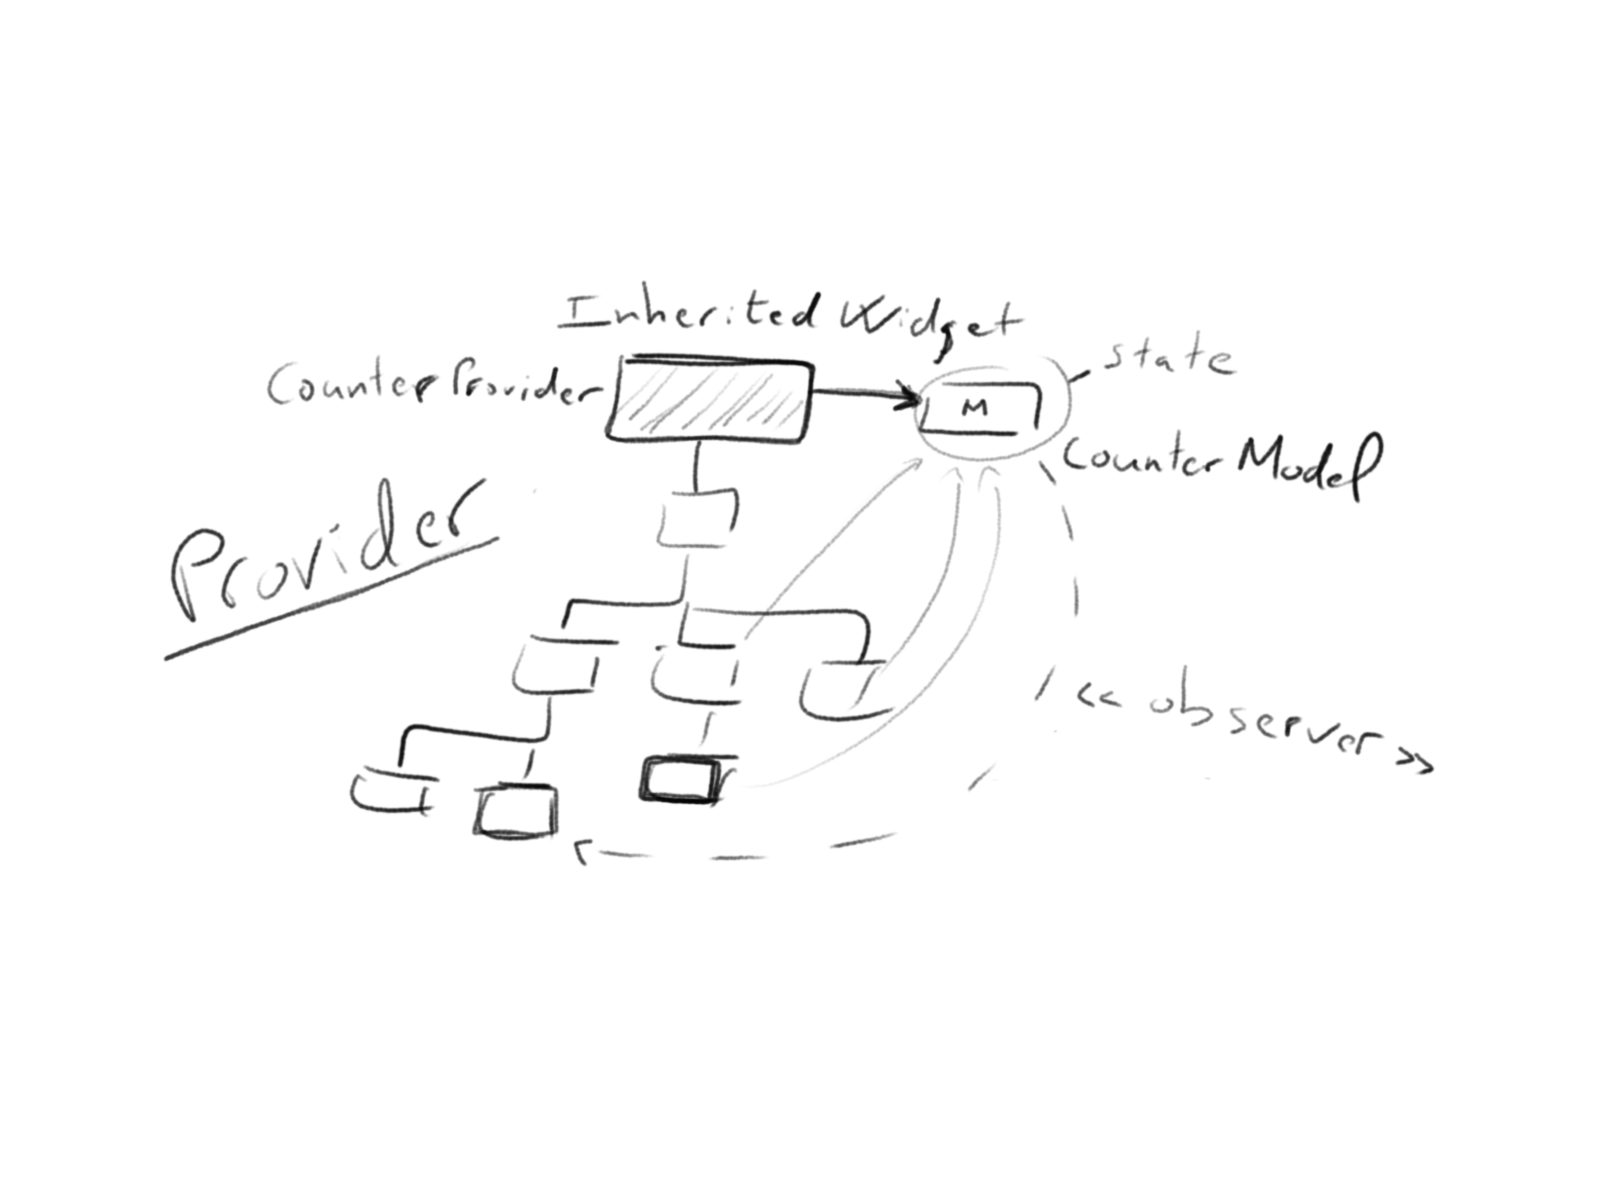 Inherited Widget
Counter Provider
M
state
Counter Model
Provider
<< observer >>